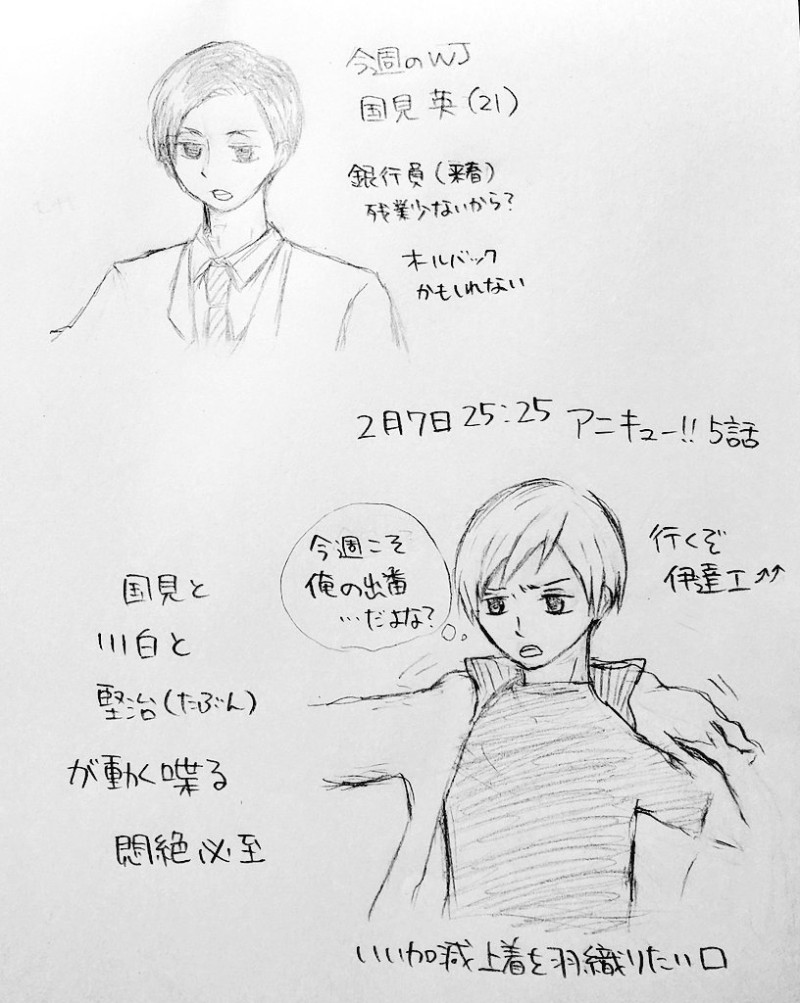 今週のWJ
国見 英(21)
銀行員(来春)
残業少ないから?
オールバック
かもしれない
2月7日 25:25 アニキュー!! 5話
今週こそ
俺の出番
…だよな?
行くぞ
伊達工↑↑
国見と
川白と
堅治(たぶん)
が動く喋る
悶絶必至
いい加減上着を羽織りたい口